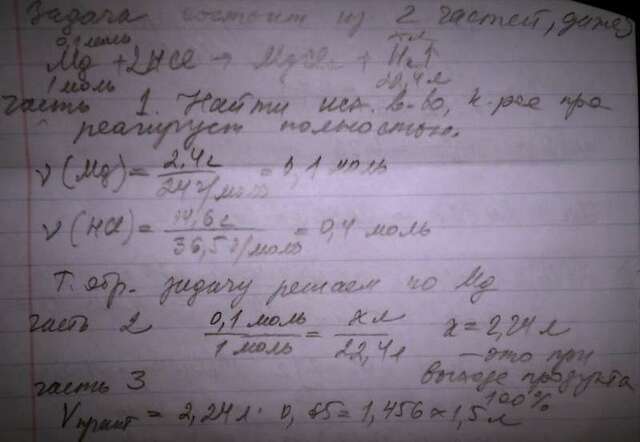 Задача состоит из 2 частей, даже 3
0,1 моль x л
Mg + 2HCl → MgCl₂ + H₂↑
1 моль 22,4 л
часть 1. Найти исх. в-во, к-рое про
реагирует полностью.
ν (Mg) = 2,4 г / 24 г/моль = 0,1 моль
ν (HCl) = 14,6 г / 36,5 г/моль = 0,4 моль
Т. обр. задачу решаем по Mg
часть 2 0,1 моль / 1 моль = x л / 22,4 л x = 2,24 л
– это при
выходе продукта
100%
часть 3
Vпракт = 2,24 л · 0,65 = 1,456 ≈ 1,5 л